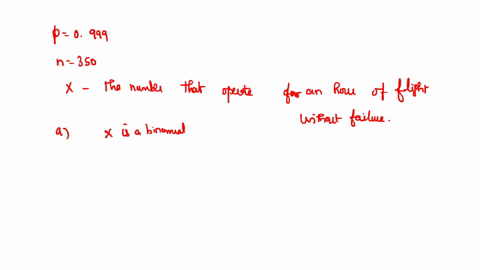 p=0.999
n=350
X - the number that operate for an hour of flight
without failure.
a) X is a binomial